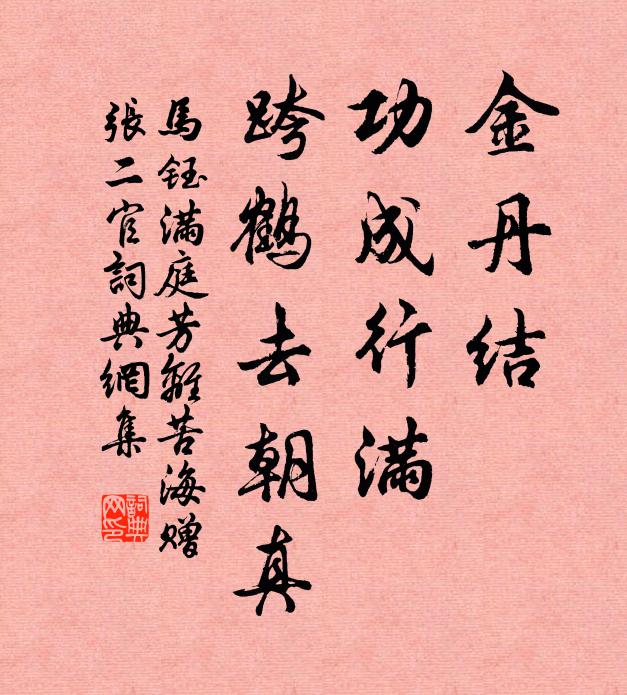 金丹结
功成行满
跨鹤去朝真
馬钰满庭芳離苦海赠
張二官詞典網集
詞典网印